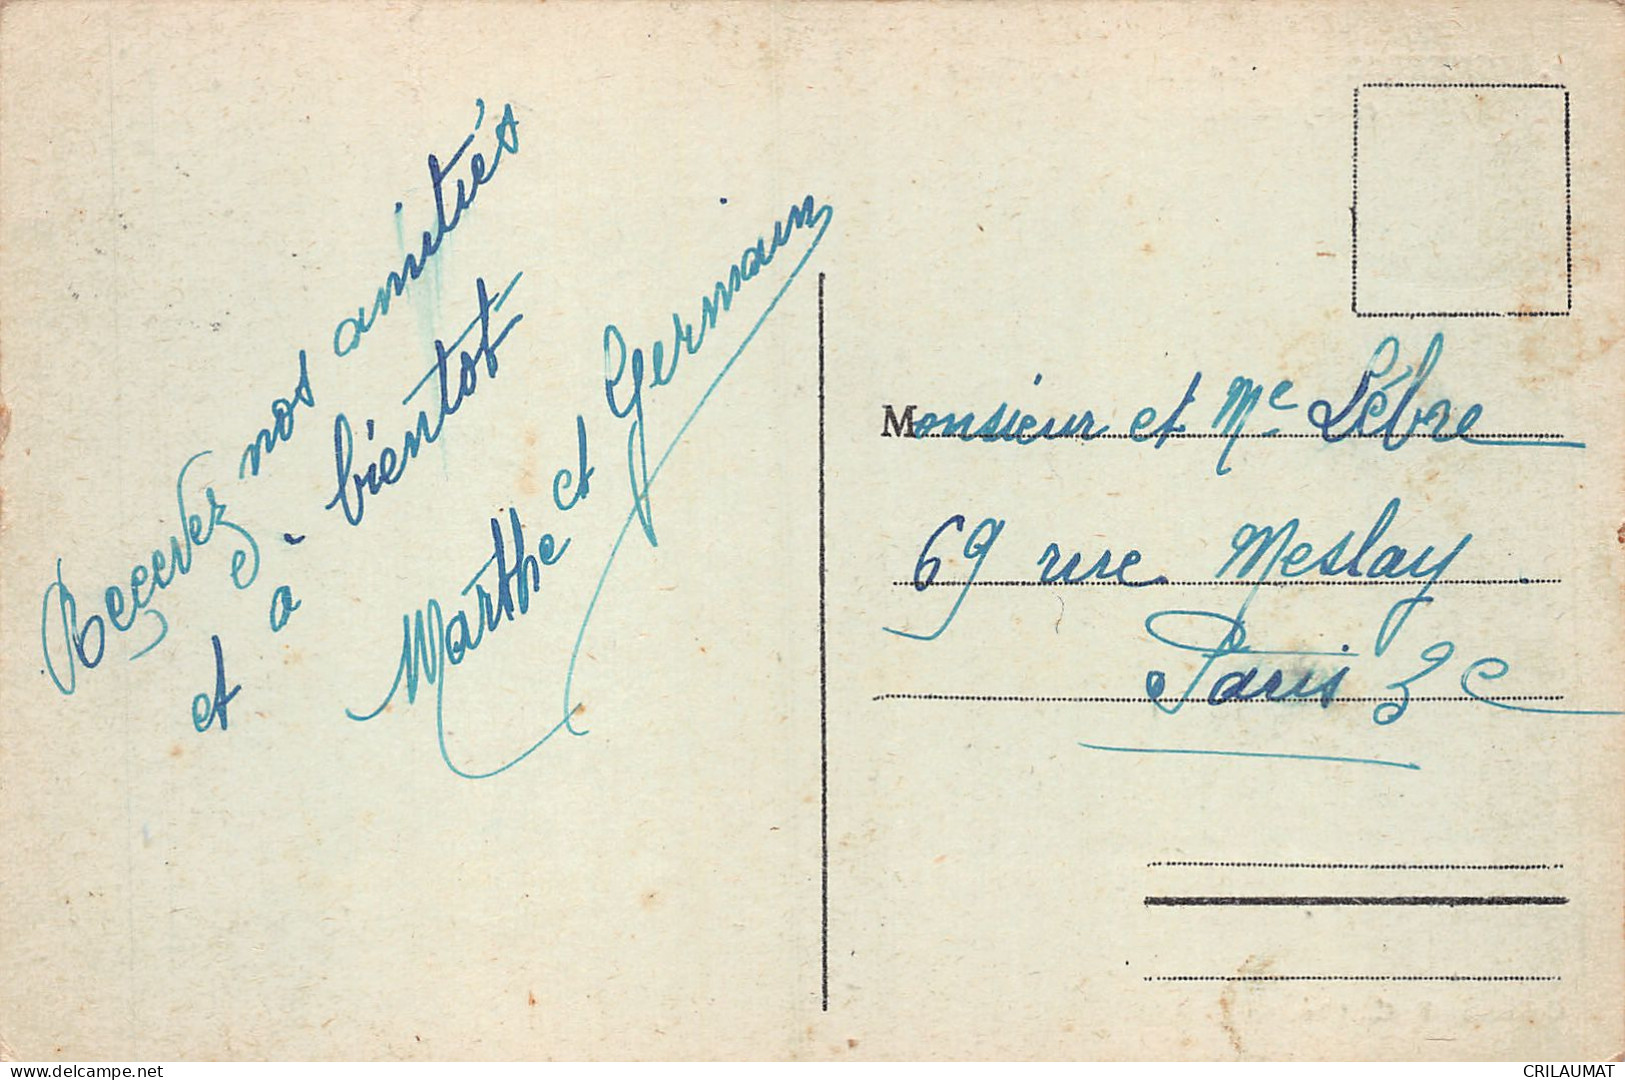 Recevez nos amitiés
et à bientot
Marthe et Germain
Monsieur et Me Lébre
69 rue Meslay
Paris 3e
www.delcampe.net
CRILAUMAT